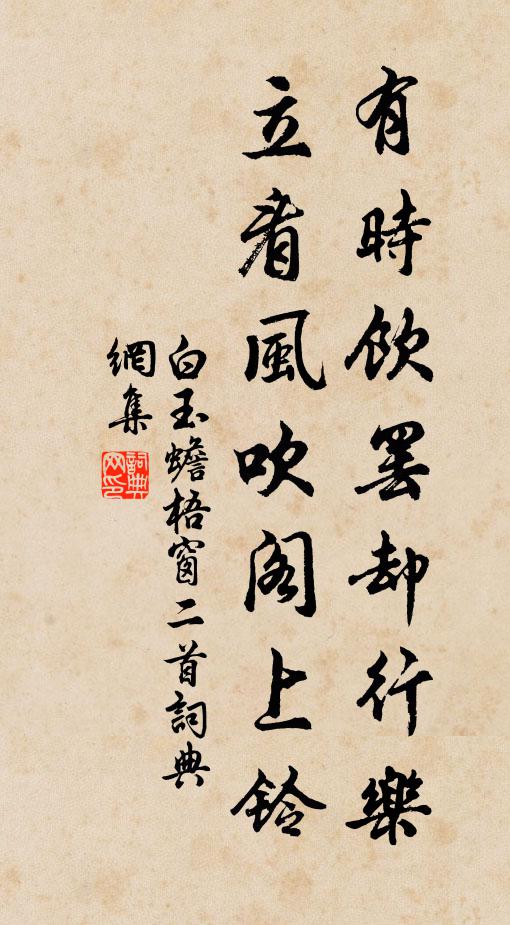 有時飲罷却行樂
立看風吹閣上鈴
白玉蟾梧窗二首詞典
網集
詞典網印